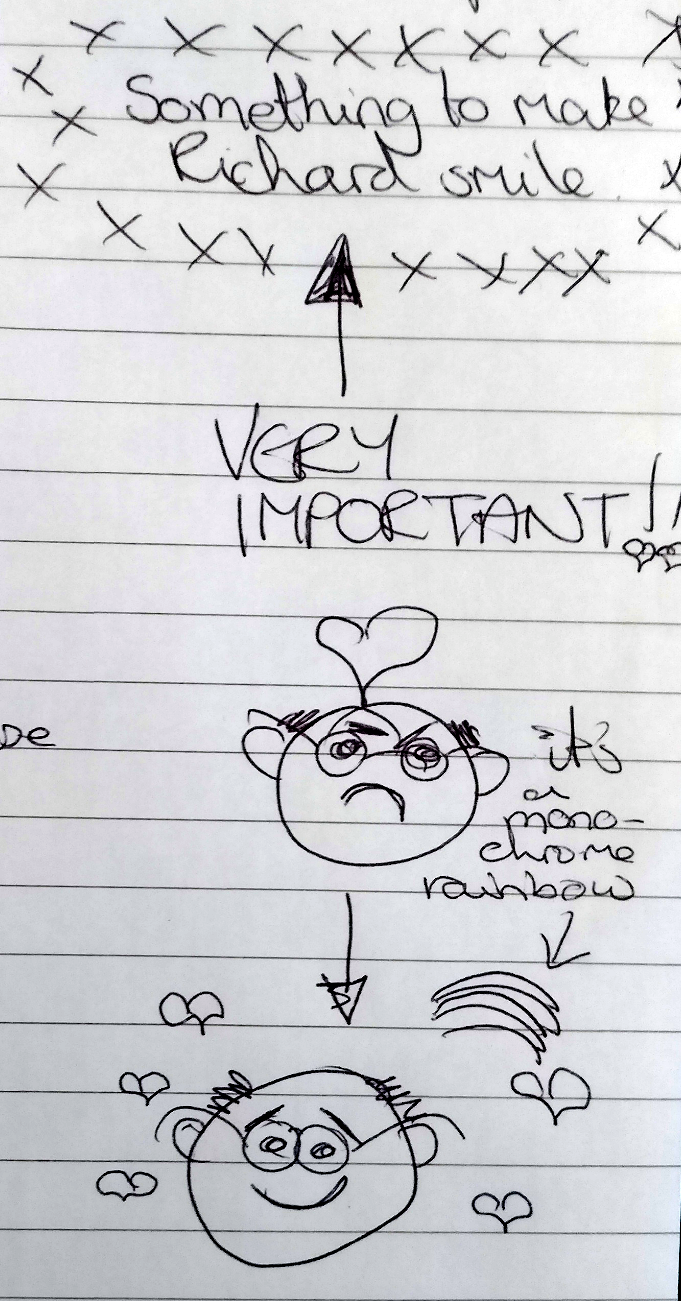 Something to make
Richard smile.
VERY
IMPORTANT!!
DE
it's
a
mono-
chrome
rainbow